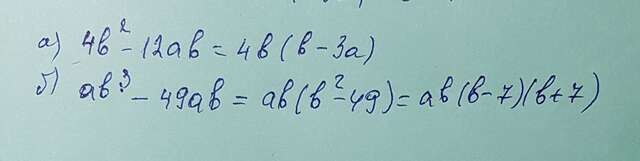 а) 4b² - 12ab = 4b(b - 3a)
б) ab³ - 49ab = ab(b² - 49) = ab(b - 7)(b + 7)